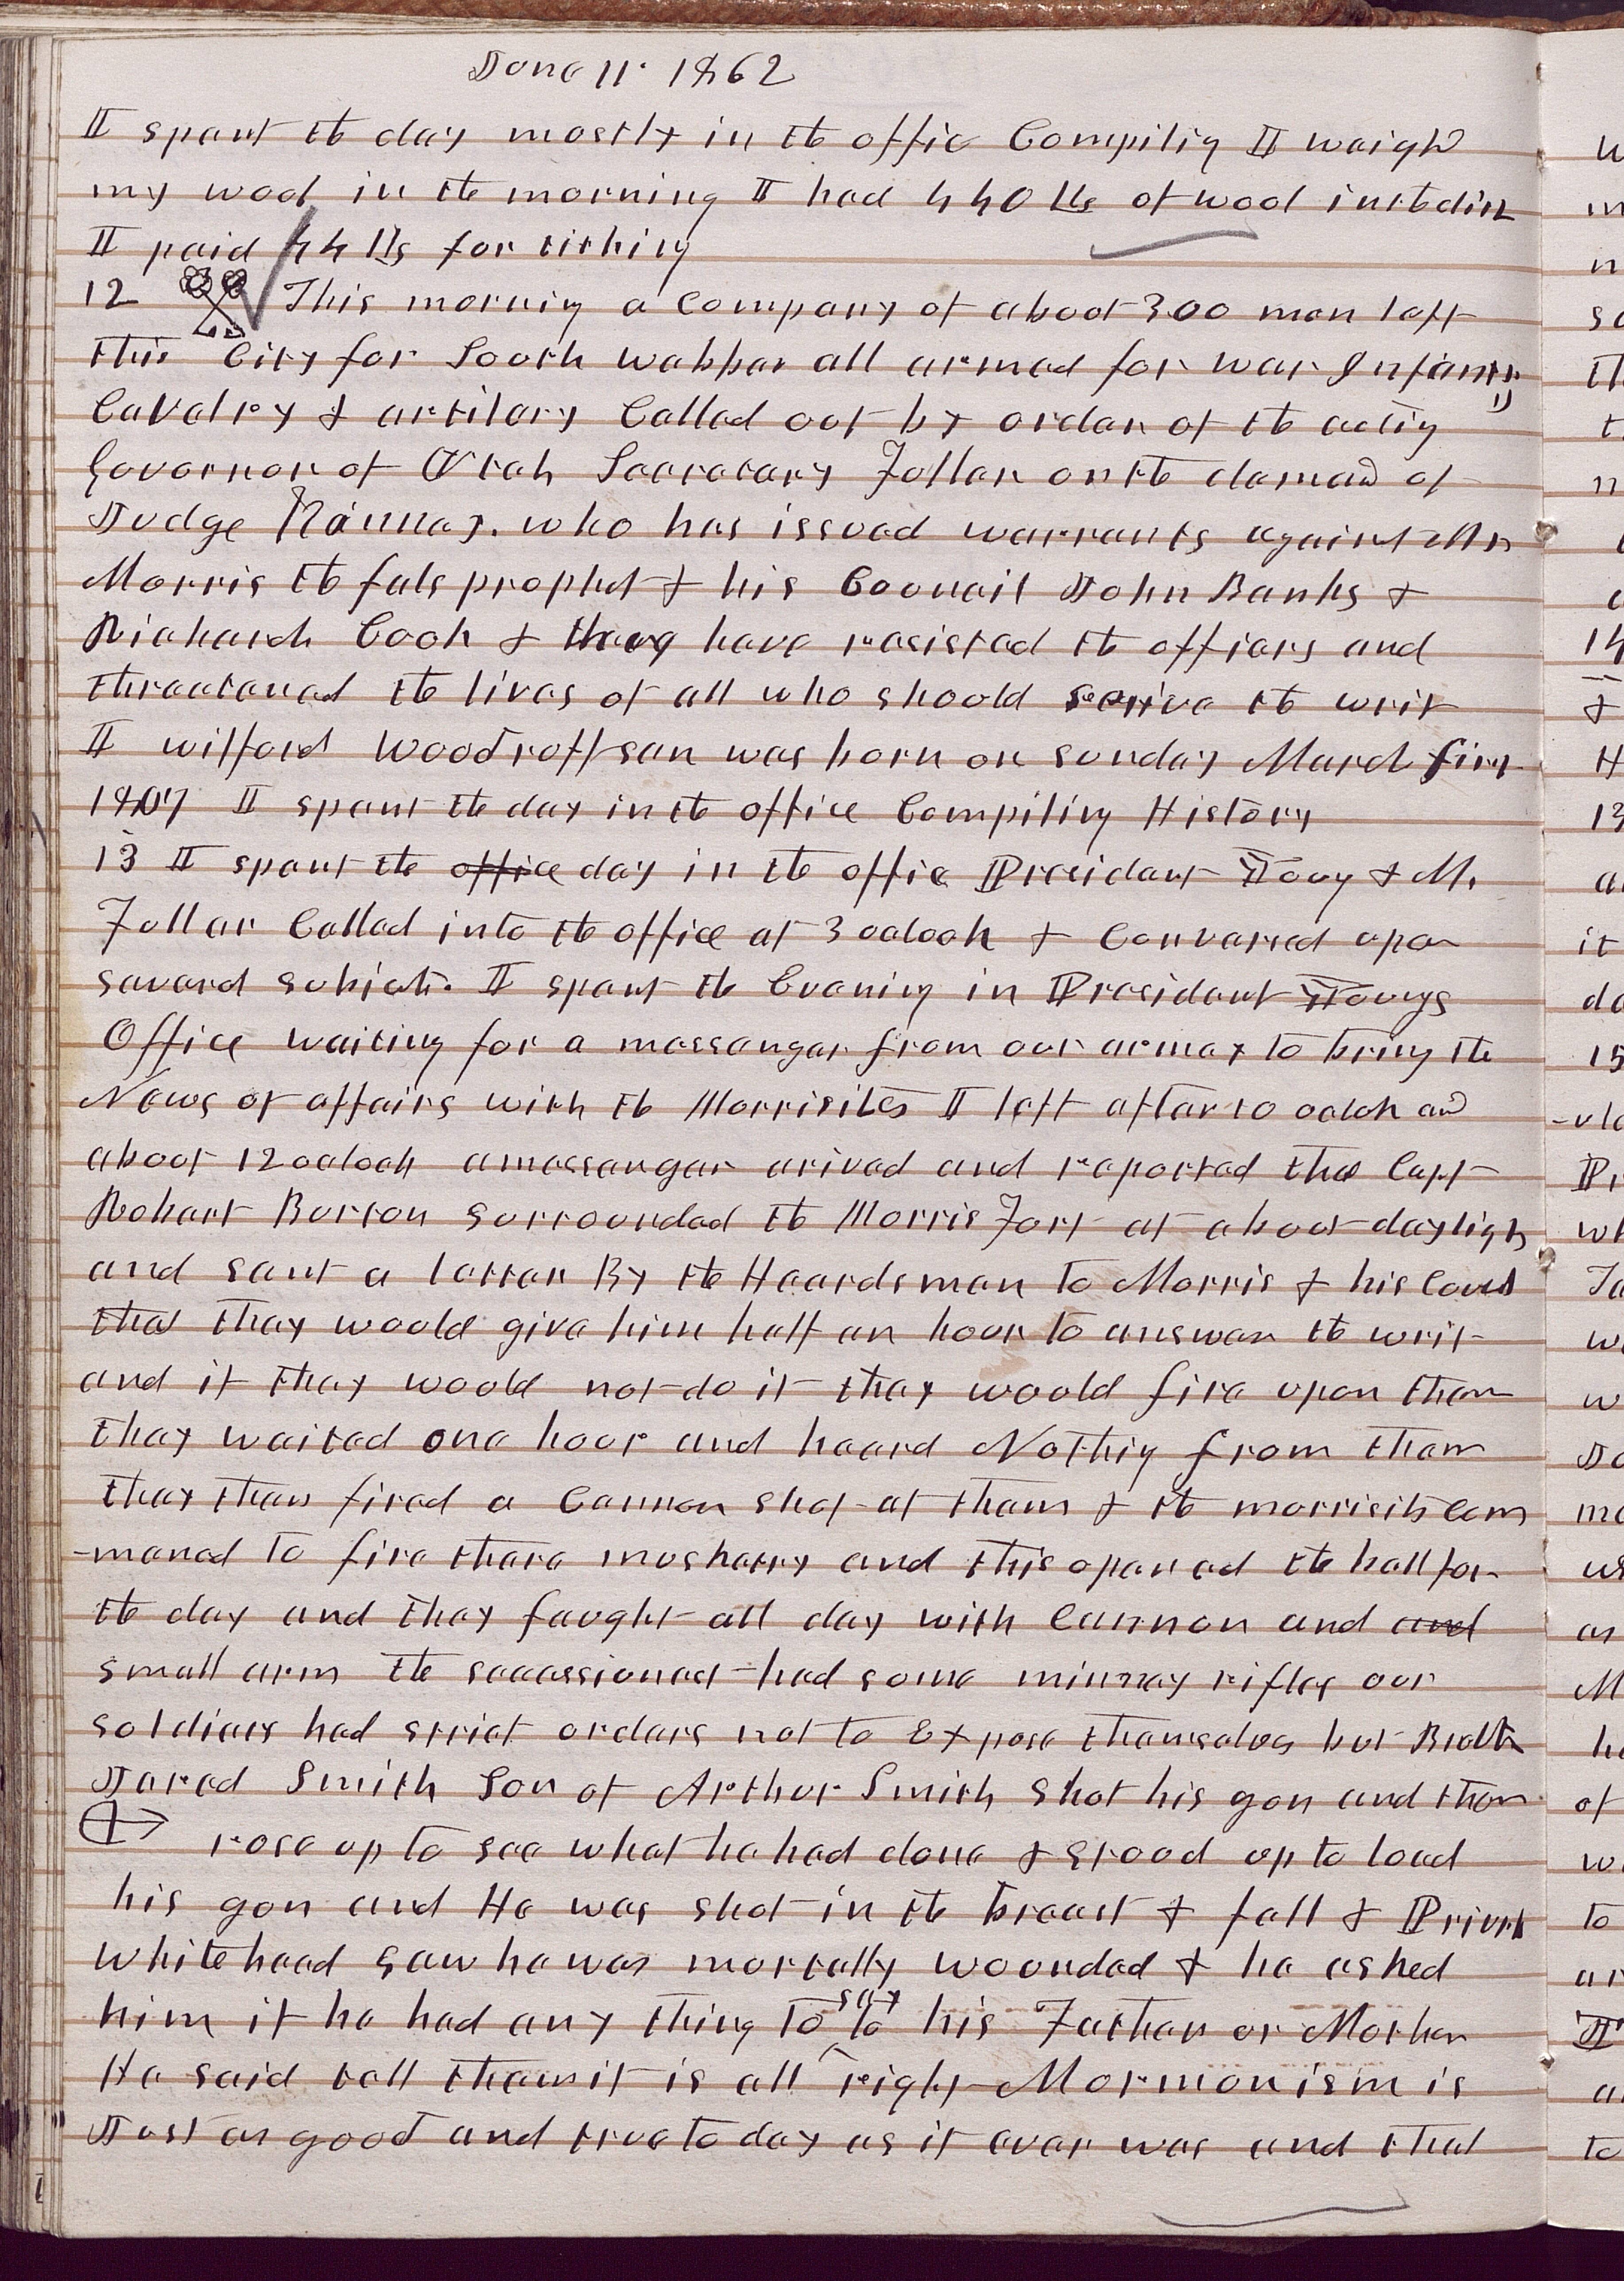 June 11. 1862
I spent the day mostly in the office Compiling I weighd
my wool in the morning I had 440 lbs of wool
I paid 44 lbs for tithing
12 This morning a company of about 300 men left
this City for South webber all armed for war Infantry
Cavalry & artilery Called out by order of the acting
Governor of Utah Secretary Fuller on the demand of
Judge Kinney. who has issued warrants against Mr
Morris the fals prophet & his Councill John Banks &
Richard Cook & they have resisted the officers and
threatened the lives of all who should serve the writ
I wilford Woodruff sen was born on sunday March first
1807 I spent the day in the office Compiling History
13 I spent the office day in the office President Young & Mr
Fuller Called into the office at 3 oclock & Conversed upon
severl subjects. I spent the Evening in President Youngs
Office waiting for a messenger from our army to bring the
News of affairs with the Morrisites I left after 10 oclok and
about 12 oclock a messenger arived and reported that Capt
Robert Burton surrounded the Morris Fort at about daylight
and sent a letter By the Heardsman to Morris & his
that they would give him half an hour to answer the writ
and if they would not do it they would fire upon them
they waited one hour and heard Nothing from them
they then fired a cannon shot at them & the morrisits com
-menced to fire there musketry and this opened the ball for
the day and they faught all day with cannon and and
small arm the secessionest had some minnay rifles our
soldiers had strict orders not to Expose themselves but
Jared Smith Son of Arthur Smith shot his gun and then
rose up to see what he had done & stood up to load
his gun and He was shot in the breast & fell &
Whitehead saw he was mortally wounded & he asked
him if he had any thing to say to his Father or Mother
He said tell them it is all right Mormonism is
Just as good and true to day as it ever was and that